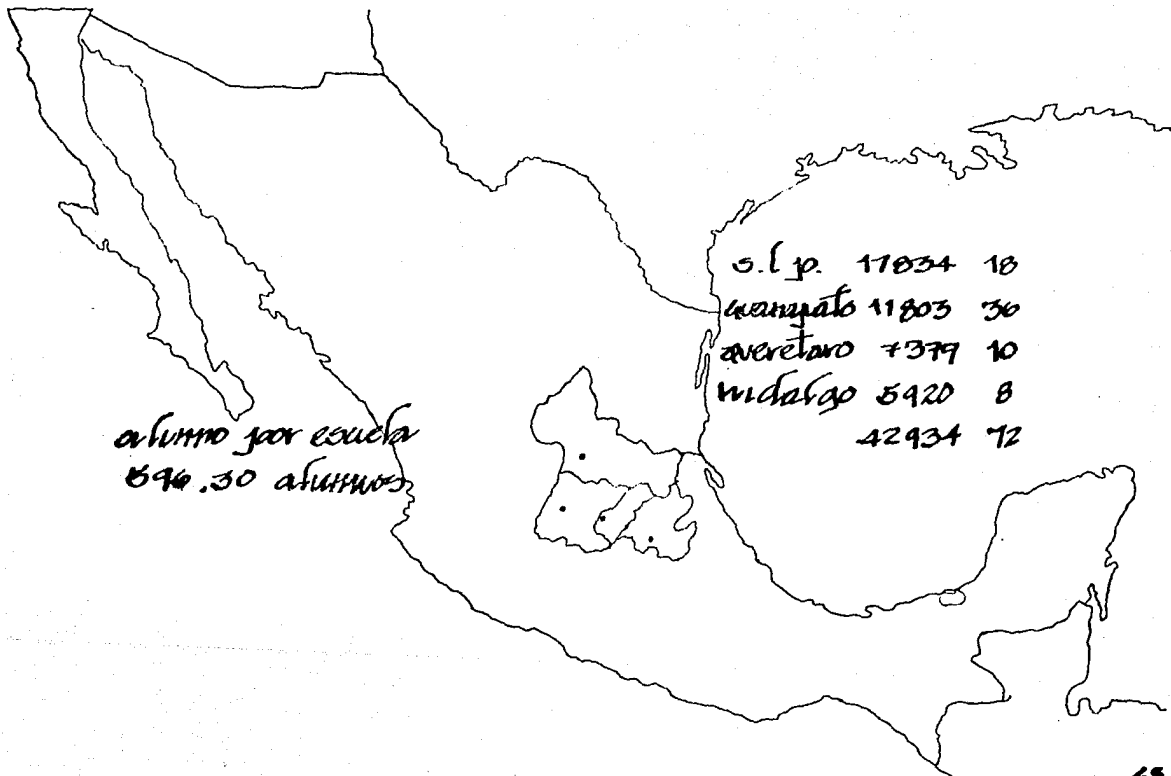 s.l.p. 17834 18
guanajuato 11803 36
queretaro 7379 10
hidalgo 5920 8
42934 72
alumno por escuela
596.30 alumnos